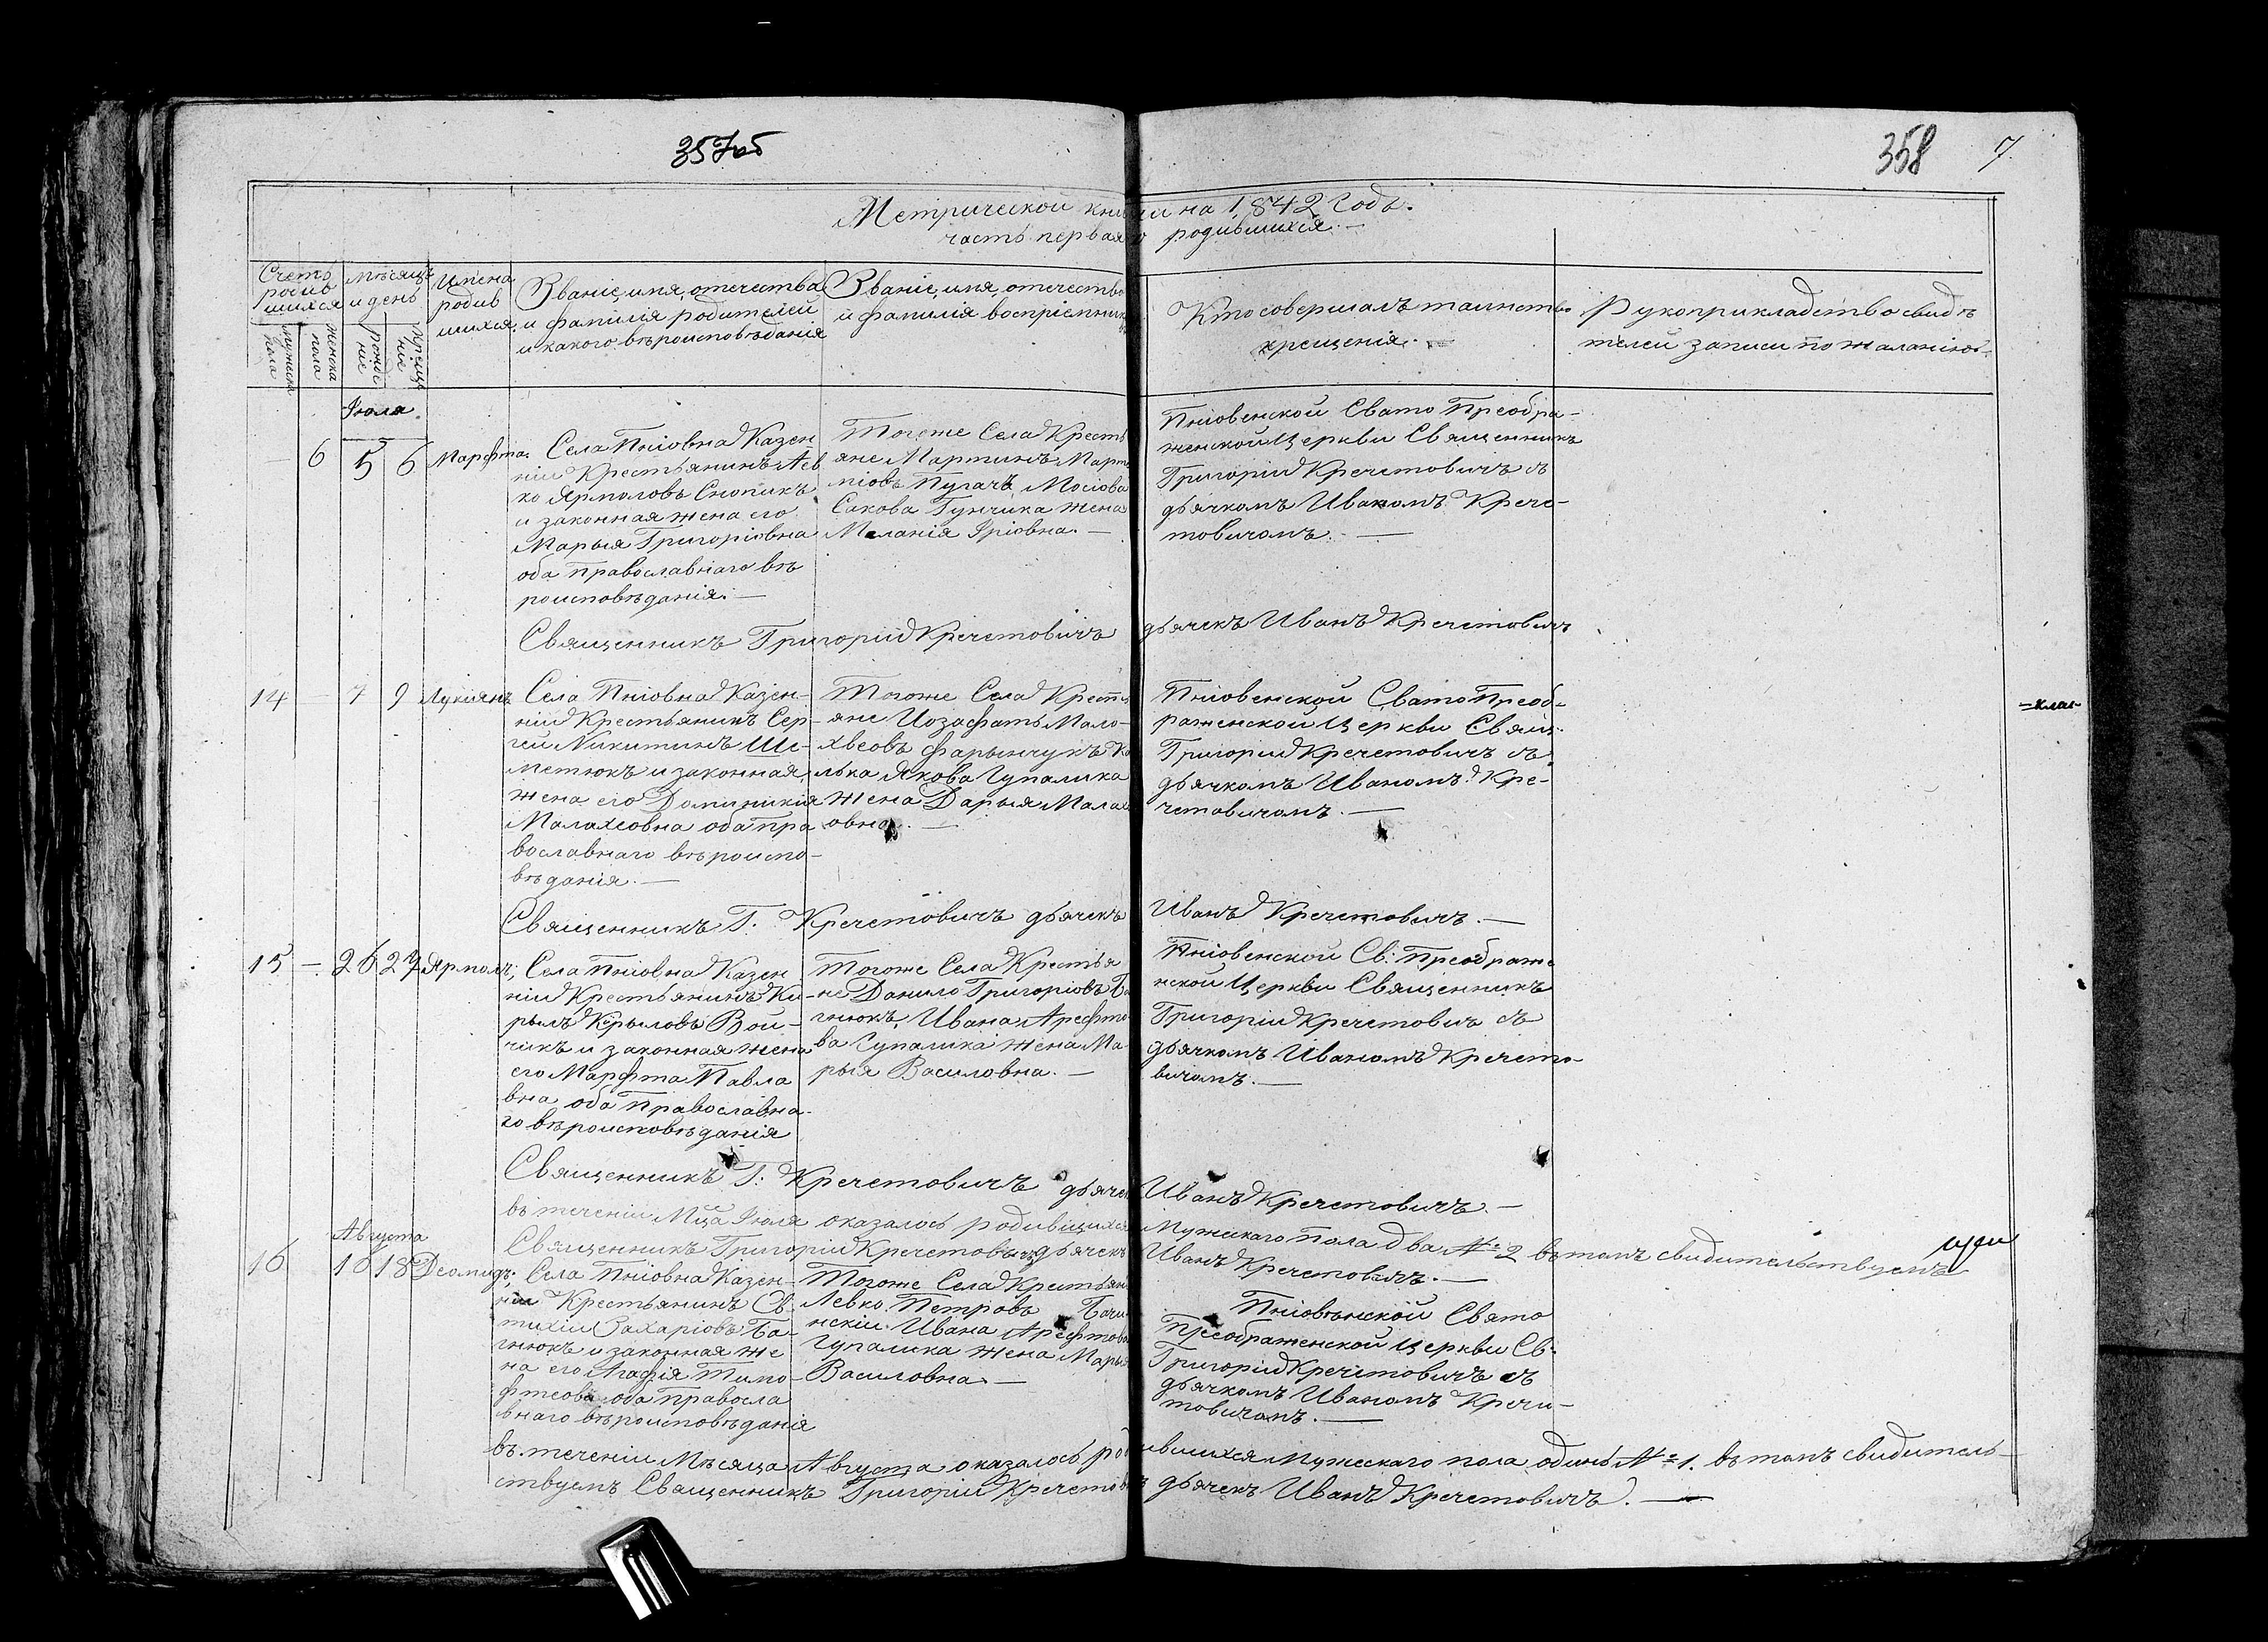 357об
358
7.
Метрической книги на 1842 годъ.
часть первая о родившихся.
Счетъ родив шихся
мужеска пола
женска пола
Мѣсяцъ и день
рожде ніе
креще ніе
Имена родив шихся
Званіе, имя, отечество
и фамилія родителей
и какого вѣроисповѣданія
Званіе, имя, отечество
и фамилія воспріемник
Кто совершалъ таинство
крещенія.
Рукоприкладство свидѣ
телей записи по желанію
Іюля
— 6 5 6 Марфта
Села Пніовна Казен
ній Крестьянинъ Лев
ко Ярмоловъ Снопикъ
и законная жена его
Марыя Григоріовна
оба православнаго вѣ
роисповѣданія. —
Тогоже Села Кресть
яне Мартинъ Март
Пугачъ, Мосіова
Сакова Гунчика жена
Меланія Іріовна. —
Пніовенской Свято Преобра-
женской Церкви Священникъ
Григорій Кречетовичъ съ
дьячкомъ Иваномъ Крече-
товичомъ. —
Священникъ Григорій Кречетовичъ дьячекъ Иванъ Кречетовичъ
14 — 7 9 Лукіянъ
Села Пніовна Казен-
ній Крестьянинъ Сер-
гей Никитинъ Ше-
метюкъ и законная
жена его Доминикія
Малахеовна оба пра
вославнаго вѣроиспо-
вѣданія. —
Тогоже Села Кресть
яне Иозафатъ Мало-
хвеовъ Фарынчукъ Ко
лька Якова Чупалика
жена Дарыя Мала
овна. —
Пніовенской Свято Преоб-
раженской Церкви Свящ.
Григорій Кречетовичъ съ
дьячкомъ Иваномъ Кре-
четовичомъ. —
Священникъ Г. Кречетовичъ дьячекъ Иванъ Кречетовичъ. —
15 — 26 27 Ярмолъ,
Села Пніовна Казен
ній Крестьянинъ Ки-
рылъ Кѣрыловъ Вой-
чикъ и законная жена
его Марфта Павла
вна оба Православна-
го вѣроисповѣданія
Тогоже Села Крестья
не Данило Григоріовъ Ба
гнюкъ, Ивана Арефто
ва Чупалика жена Ма-
рыя Василовна. —
Пніовенской Св: Преображе
нской Церкви Священникъ
Григорій Кречетовичъ съ
дьячкомъ Иваномъ Кречето-
вичомъ. —
Священникъ Г: Кречетовичъ дьячек Иванъ Кречетовичъ. —
въ теченіи Мца Іюля оказалось родившихся Мужескаго пола два № 2 въ томъ свидительствуемъ
Священникъ Григорій Кречетовичъ дьячекъ Иванъ Кречетовичъ. —
Августа
16 16 18 Деомидъ;
Села Пніовна Казен-
ній Крестьянинъ Ев-
тихій Захаріовъ Ба-
гнюкъ и законная же
на его Агафія Тимо-
фтеова оба Правосла
внаго вѣроисповѣданія
Тогоже Села Крестьян
Левко Петровъ Бачи
нскій. Ивана Арефтова
Чупалика жена Марыя
Василовна. —
Пніовѣнской Свято
Преображенской Церкви Св:
Григорій Кречетовичъ съ
дьячкомъ Иваномъ Кречи-
товичомъ. —
въ теченіи Мѣсяца Августа оказалось родившихся Мужескаго пола одинъ № 1. въ томъ свидитель-
ствуемъ Священникъ Григорій Кречетовъ дьячекъ Иванъ Кречетовичъ. —